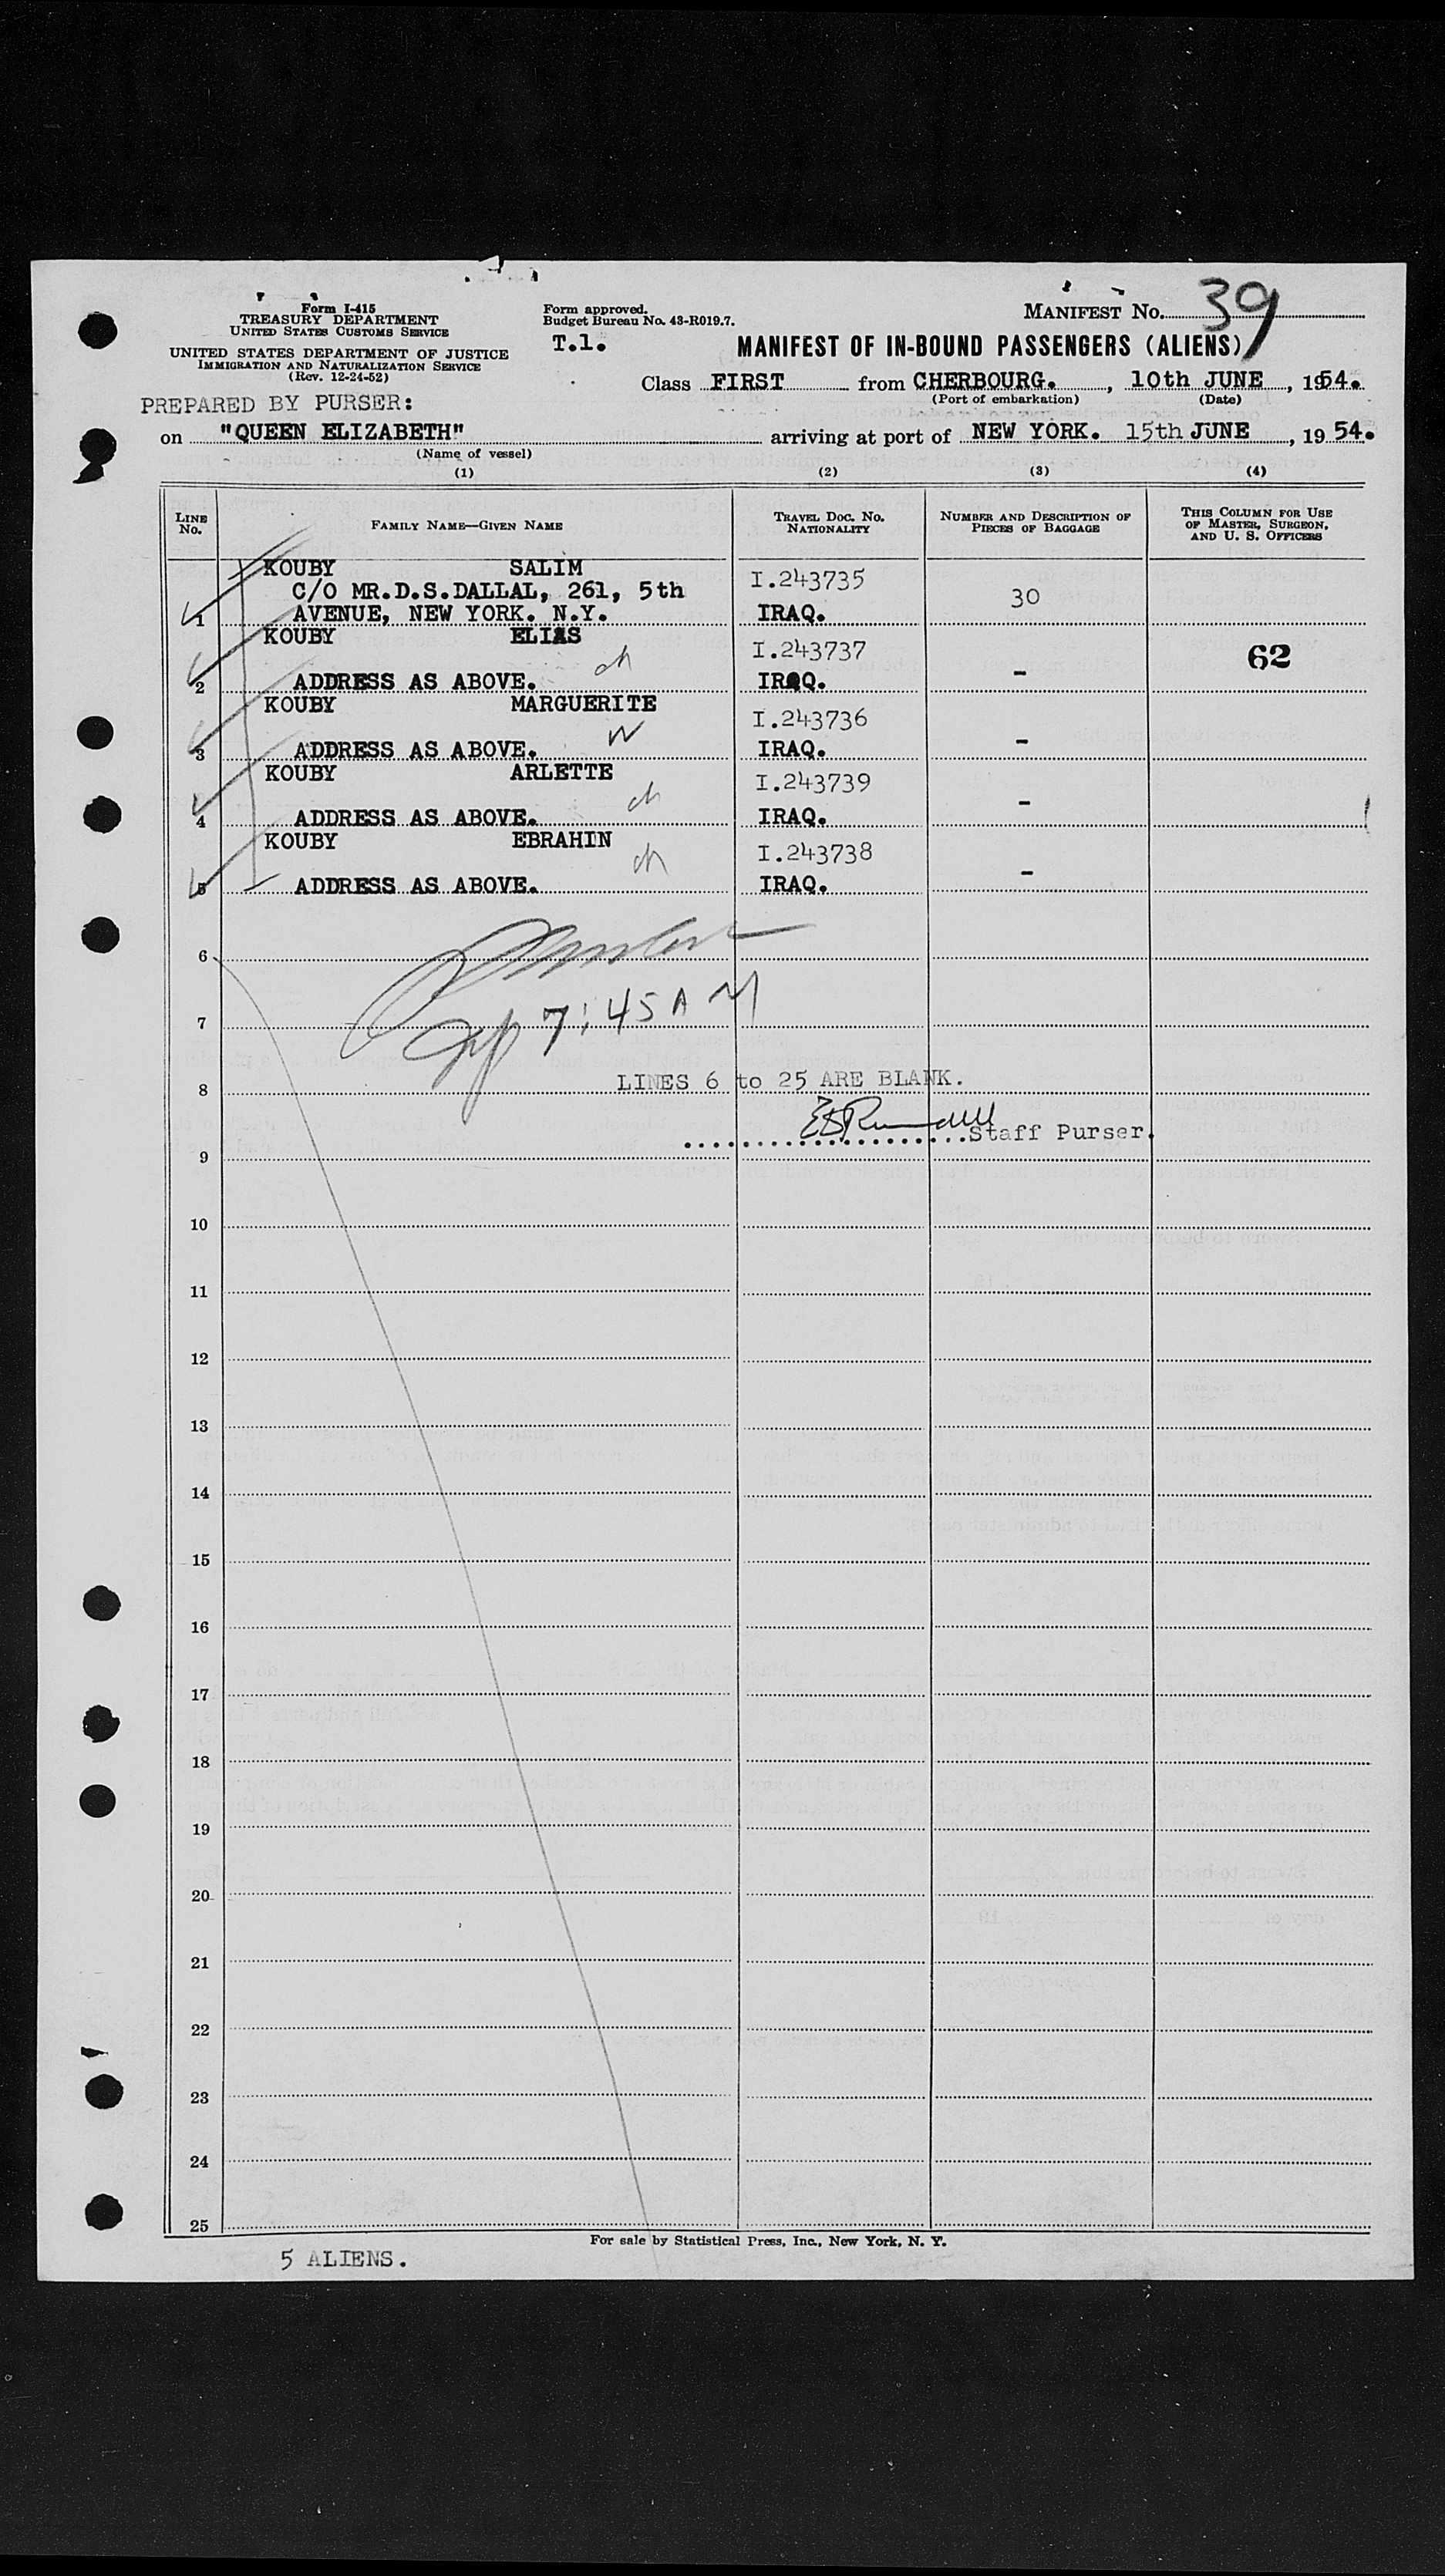 Form I-415
TREASURY DEPARTMENT
UNITED STATES CUSTOMS SERVICE
UNITED STATES DEPARTMENT OF JUSTICE
IMMIGRATION AND NATURALIZATION SERVICE
(Rev. 12-24-52)
Form approved.
Budget Bureau No. 43-R019.7.
T.1.
MANIFEST No. 39
MANIFEST OF IN-BOUND PASSENGERS (ALIENS)
Class FIRST from CHERBOURG. , 10th JUNE , 1954.
(Port of embarkation) (Date)
PREPARED BY PURSER:
on "QUEEN ELIZABETH" arriving at port of NEW YORK. 15th JUNE , 19 54.
(Name of vessel)
(1) (2) (3) (4)
LINE No. FAMILY NAME—GIVEN NAME TRAVEL DOC. NO. NATIONALITY NUMBER AND DESCRIPTION OF PIECES OF BAGGAGE THIS COLUMN FOR USE OF MASTER, SURGEON, AND U. S. OFFICERS
KOUBY SALIM
C/O MR.D.S.DALLAL, 261, 5th I.243735 30
1 AVENUE, NEW YORK. N.Y. IRAQ.
KOUBY ELIAS I.243737 62
2 ADDRESS AS ABOVE. ch IRAQ. -
KOUBY MARGUERITE I.243736
3 ADDRESS AS ABOVE. W IRAQ. -
KOUBY ARLETTE I.243739
4 ADDRESS AS ABOVE. ch IRAQ. -
KOUBY EBRAHIN I.243738
5 ADDRESS AS ABOVE. ch IRAQ. -
6
7 7:45 AM
8 LINES 6 to 25 ARE BLANK.
Staff Purser.
9
10
11
12
13
14
15
16
17
18
19
20
21
22
23
24
25
For sale by Statistical Press, Inc., New York, N. Y.
5 ALIENS.